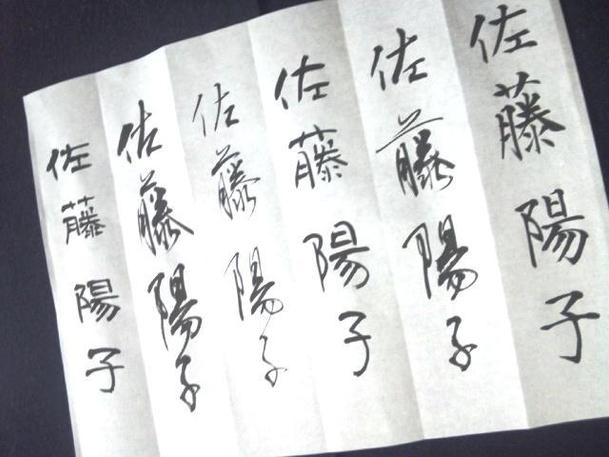 佐藤陽子
佐藤陽子
佐藤陽子
佐藤陽子
佐藤陽子
佐藤陽子